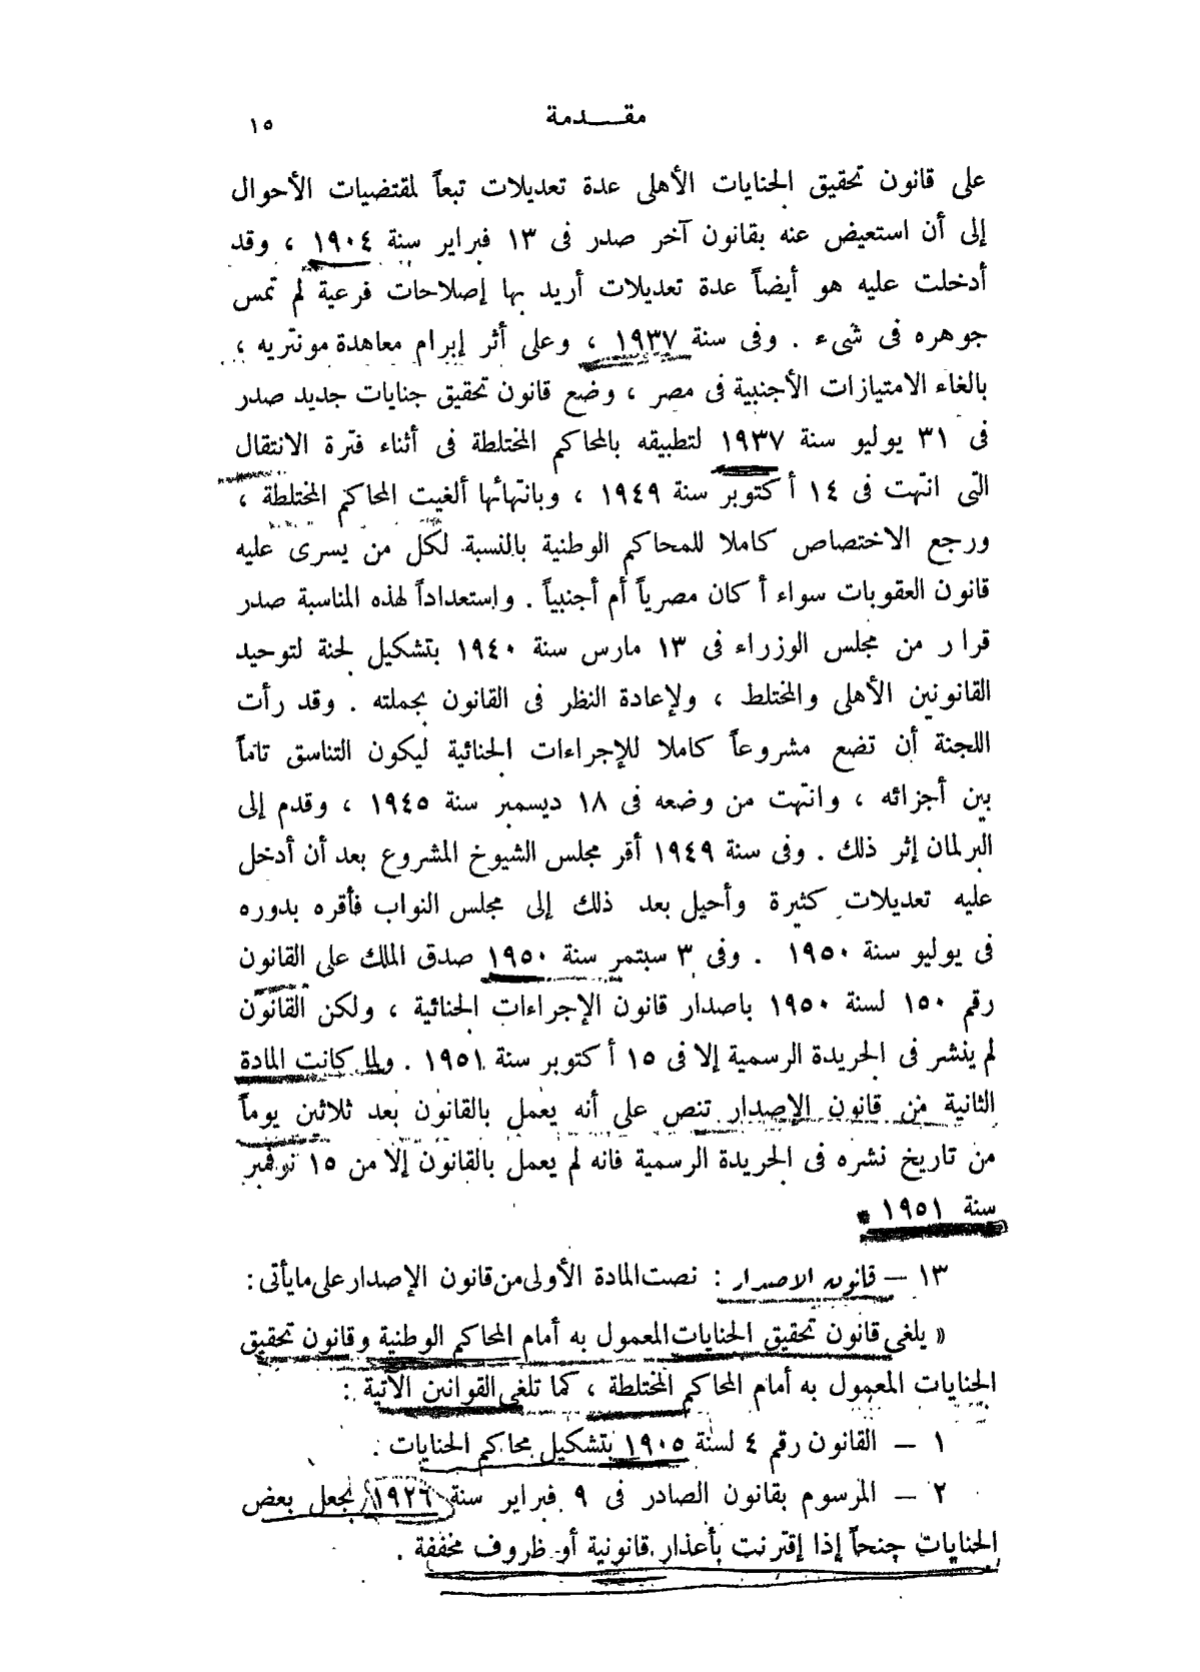 مقدمة
١٥
على قانون تحقيق الجنايات الأهلى عدة تعديلات تبعاً لمقتضيات الأحوال
إلى أن استعيض عنه بقانون آخر صدر فى ١٣ فبراير سنة ١٩٠٤ ، وقد
أدخلت عليه هو أيضاً عدة تعديلات أريد بها إصلاحات فرعية لم تمس
جوهره فى شىء . وفى سنة ١٩٣٧ ، وعلى أثر إبرام معاهدة مونتريه ،
بالغاء الامتيازات الأجنبية فى مصر ، وضع قانون تحقيق جنايات جديد صدر
فى ٣١ يوليو سنة ١٩٣٧ لتطبيقه بالمحاكم المختلطة فى أثناء فترة الانتقال
التى انتهت فى ١٤ أكتوبر سنة ١٩٤٩ ، وبانتهائها ألغيت المحاكم المختلطة ،
ورجع الاختصاص كاملا للمحاكم الوطنية بالنسبة لكل من يسرى عليه
قانون العقوبات سواء أكان مصرياً أم أجنبياً . واستعداداً لهذه المناسبة صدر
قرار من مجلس الوزراء فى ١٣ مارس سنة ١٩٤٠ بتشكيل لجنة لتوحيد
القانونين الأهلى والمختلط ، ولإعادة النظر فى القانون بجملته . وقد رأت
اللجنة أن تضع مشروعاً كاملا للإجراءات الجنائية ليكون التناسق تاماً
بين أجزائه ، وانتهت من وضعه فى ١٨ ديسمبر سنة ١٩٤٥ ، وقدم إلى
البرلمان إثر ذلك . وفى سنة ١٩٤٩ أقر مجلس الشيوخ المشروع بعد أن أدخل
عليه تعديلات كثيرة وأحيل بعد ذلك إلى مجلس النواب فأقره بدوره
فى يوليو سنة ١٩٥٠ . وفى ٣ سبتمبر سنة ١٩٥٠ صدق الملك على القانون
رقم ١٥٠ لسنة ١٩٥٠ باصدار قانون الإجراءات الجنائية ، ولكن القانون
لم ينشر فى الجريدة الرسمية إلا فى ١٥ أكتوبر سنة ١٩٥١ . ولما كانت المادة
الثانية من قانون الإصدار تنص على أنه يعمل بالقانون بعد ثلاثين يوماً
من تاريخ نشره فى الجريدة الرسمية فانه لم يعمل بالقانون إلا من ١٥ نوفمبر
سنة ١٩٥١ .
١٣ – قانون الاصدار : نصت المادة الأولى من قانون الإصدار على ما يأتى :
« يلغى قانون تحقيق الجنايات المعمول به أمام المحاكم الوطنية وقانون تحقيق
الجنايات المعمول به أمام المحاكم المختلطة ، كما تلغى القوانين الآتية :
١ – القانون رقم ٤ لسنة ١٩٠٥ بتشكيل محاكم الجنايات .
٢ – المرسوم بقانون الصادر فى ٩ فبراير سنة ١٩٢٦ بجعل بعض
الجنايات جنحاً إذا إقترنت بأعذار قانونية أو ظروف مخففة .